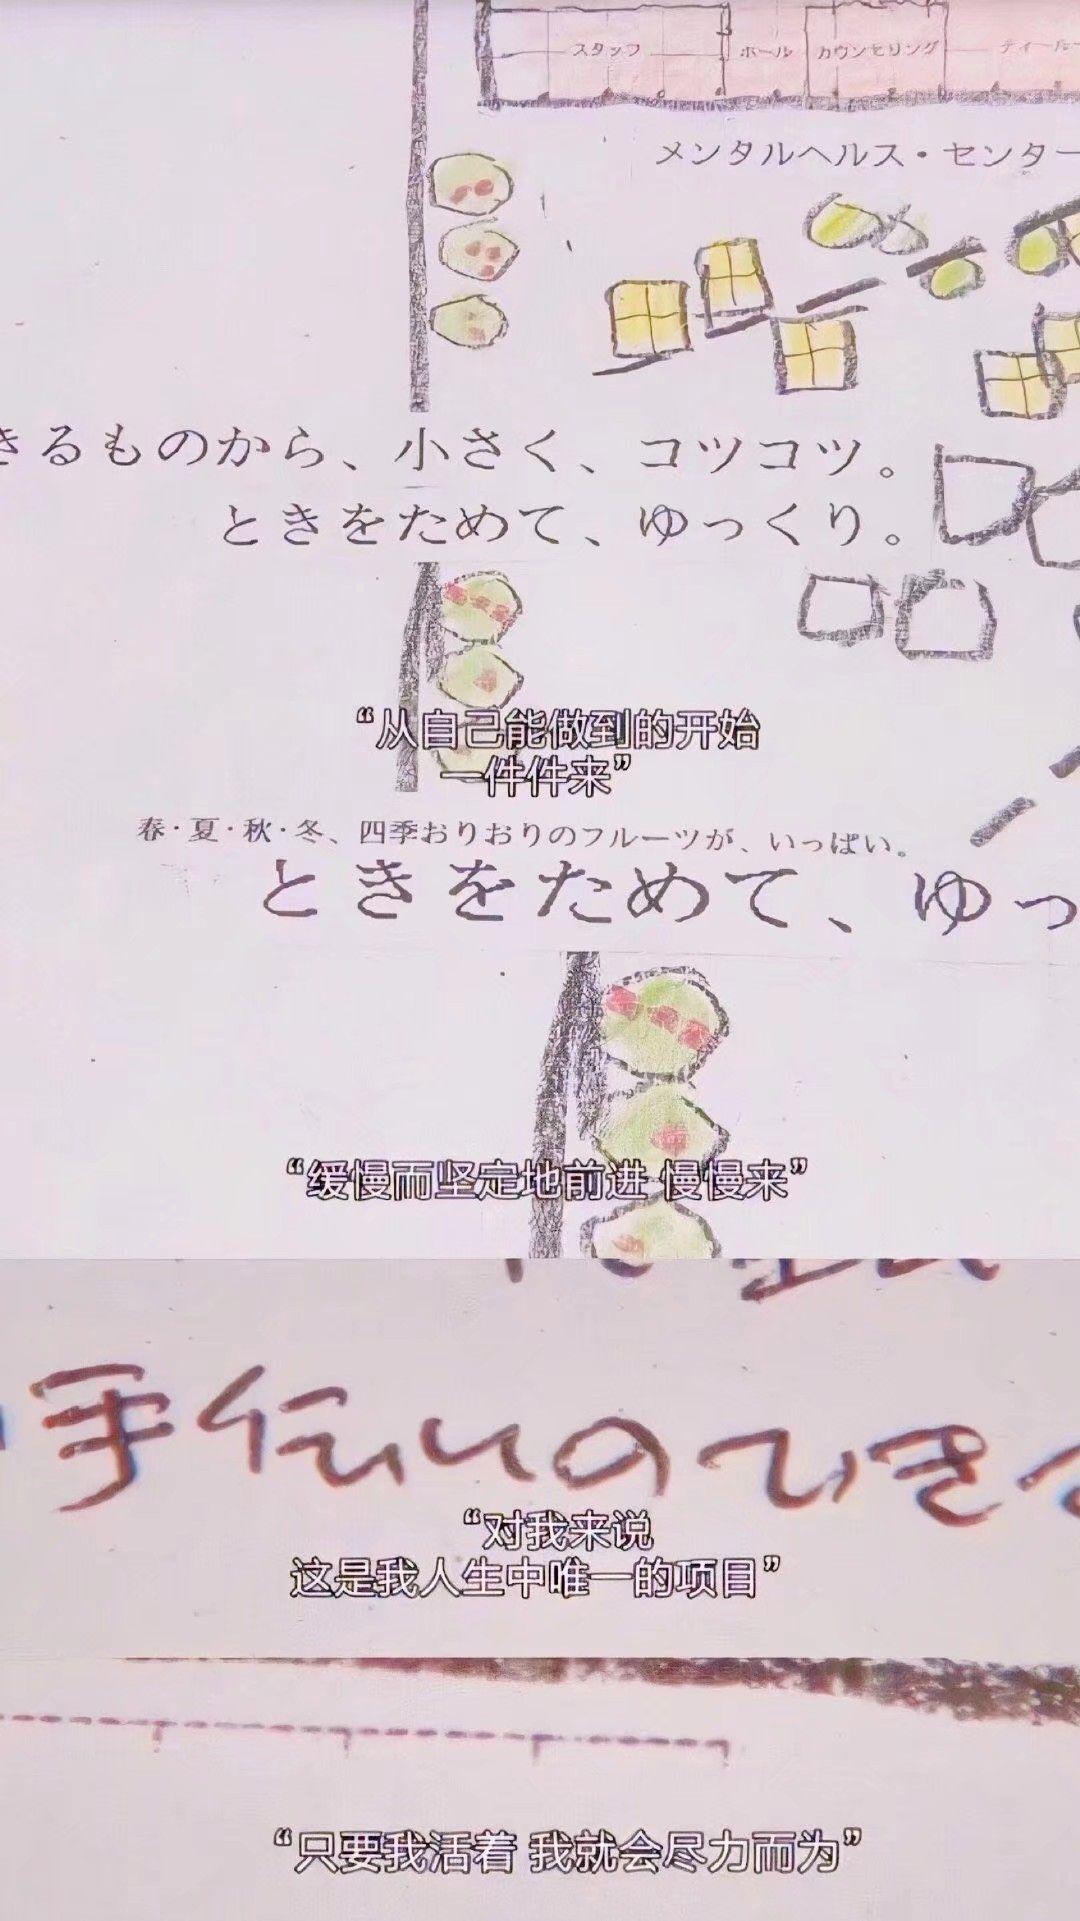 スタッフ
ホール
カウンセリング
メンタルヘルス・センター
きるものから、小さく、コツコツ。
ときをためて、ゆっくり。
“从自己能做到的开始
一件件来”
春・夏・秋・冬、四季おりおりのフルーツが、いっぱい。
ときをためて、ゆっ
“缓慢而坚定地前进 慢慢来”
手伝いのでき
“对我来说
这是我人生中唯一的项目”
“只要我活着 我就会尽力而为”